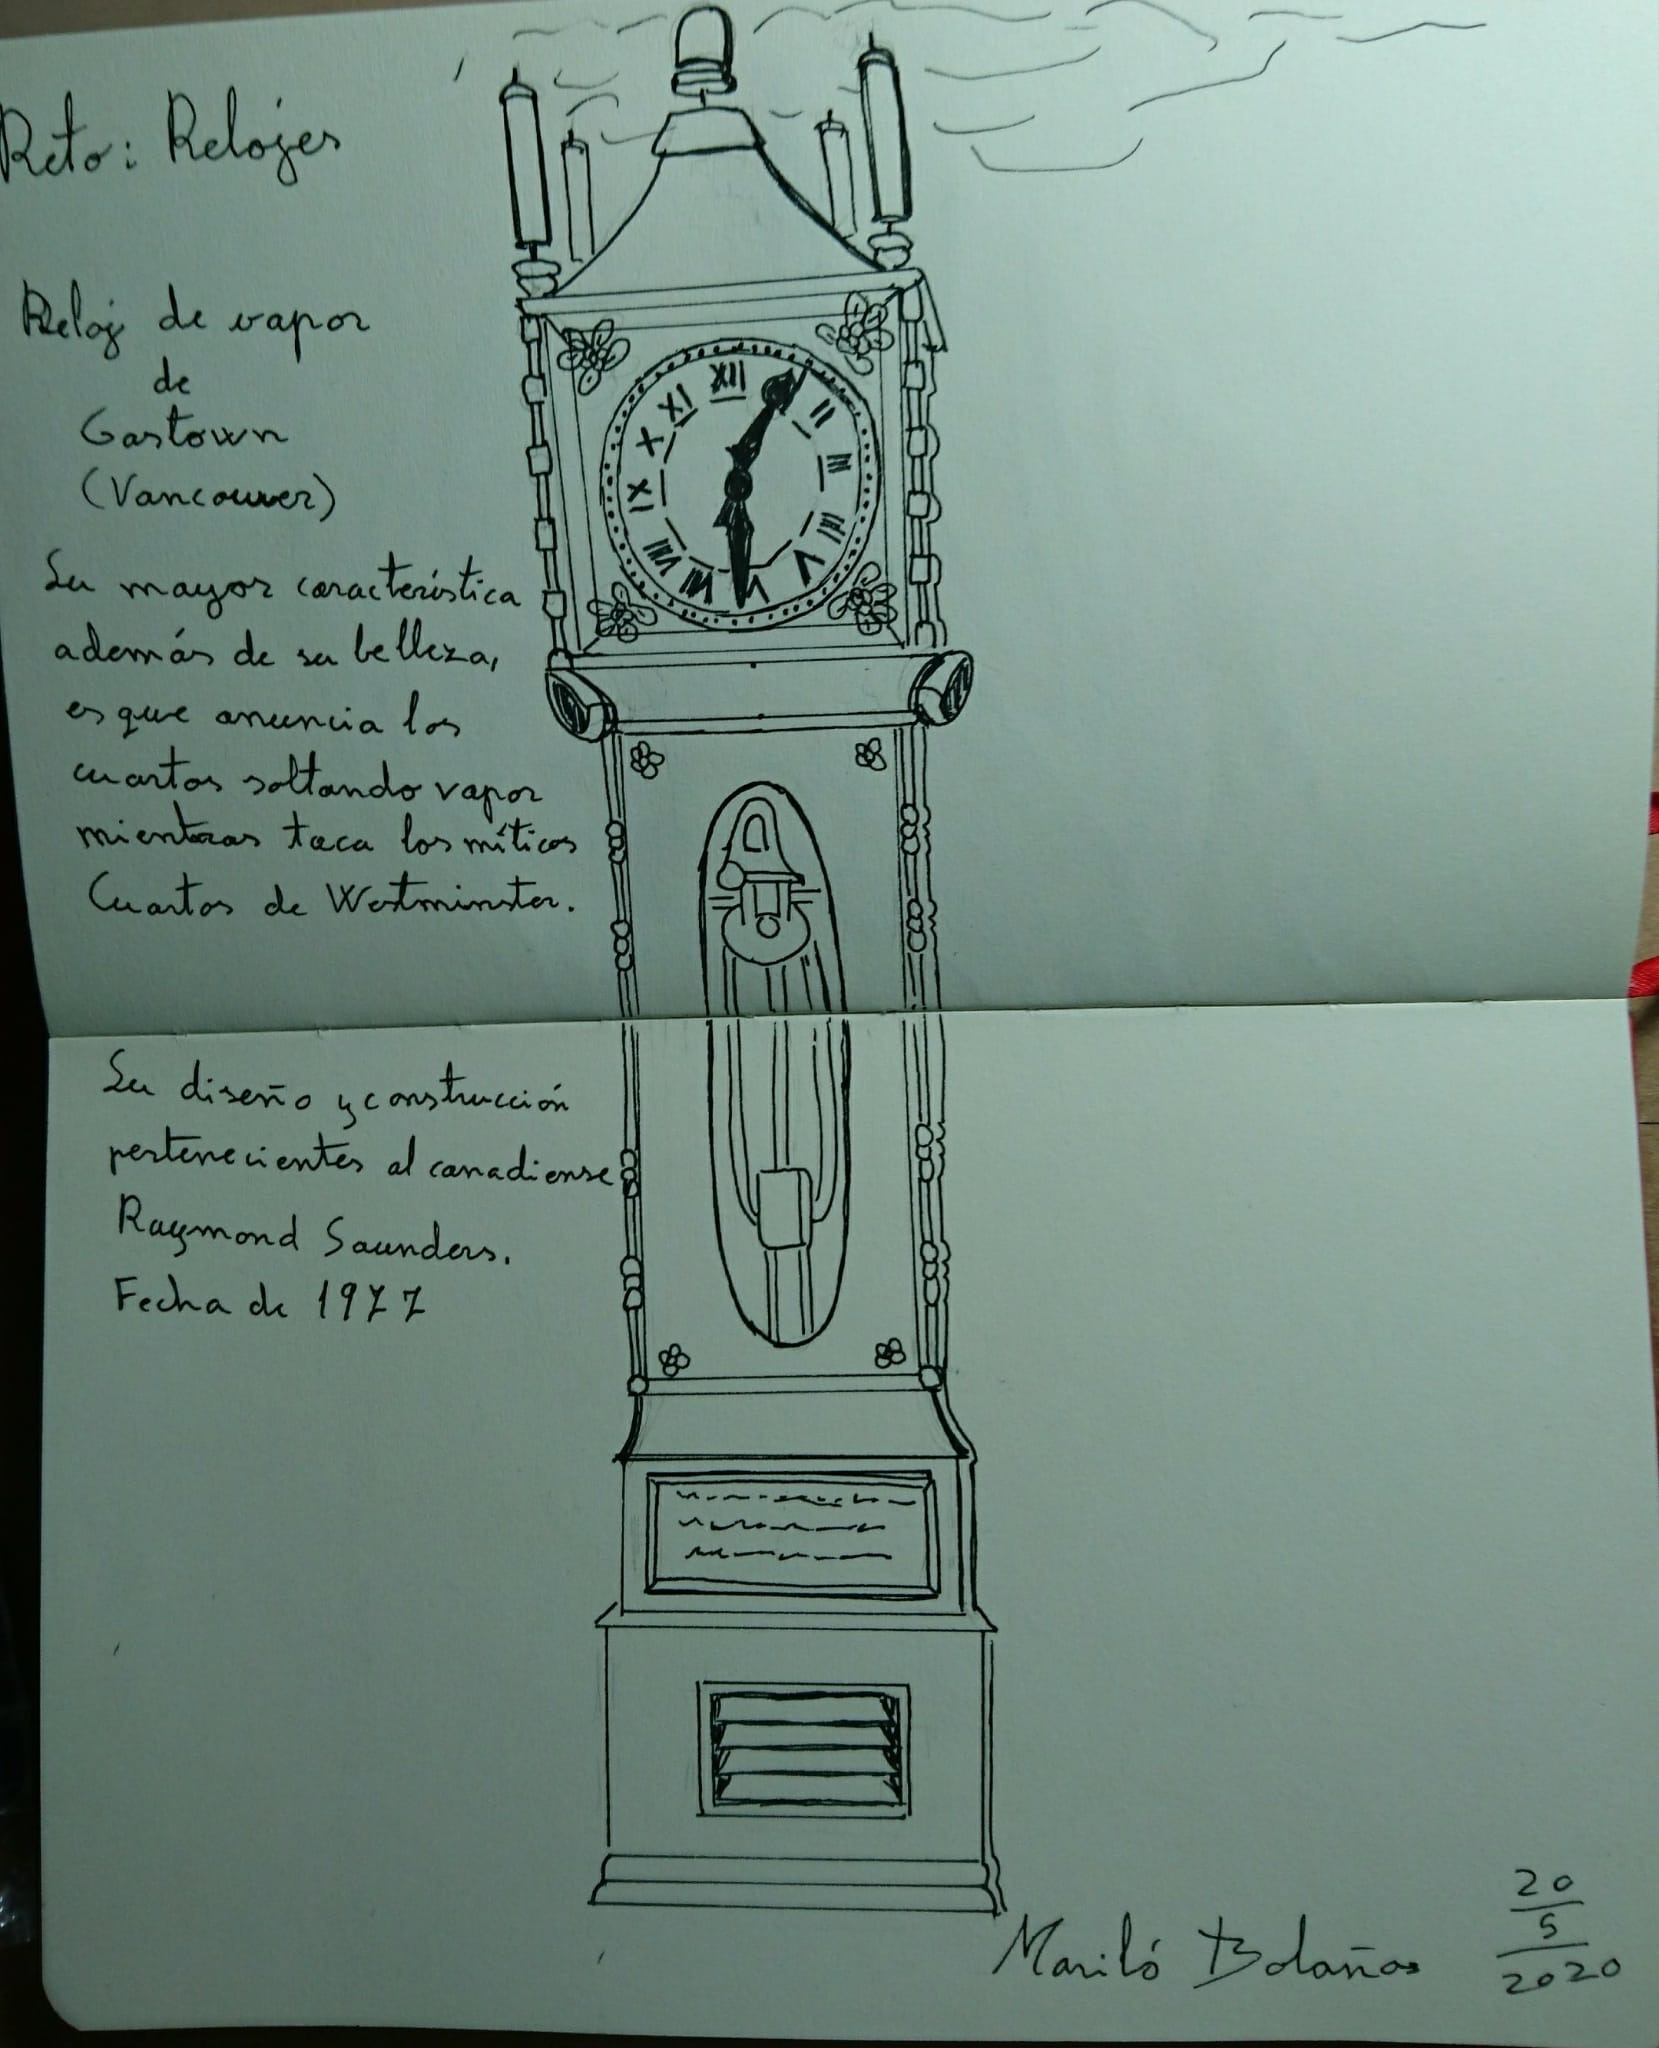 Reto: Relojes
Reloj de vapor
de
Gastown
(Vancouver)
Su mayor característica
además de su belleza,
es que anuncia los
cuartos soltando vapor
mientras toca los míticos
Cuartos de Westminster.
Su diseño y construcción
pertenecientes al canadiense
Raymond Saunders.
Fecha de 1977
XII
II
III
IIII
V
VI
VII
VIII
IX
X
XI
Mariló Bolaños
20
5
2020